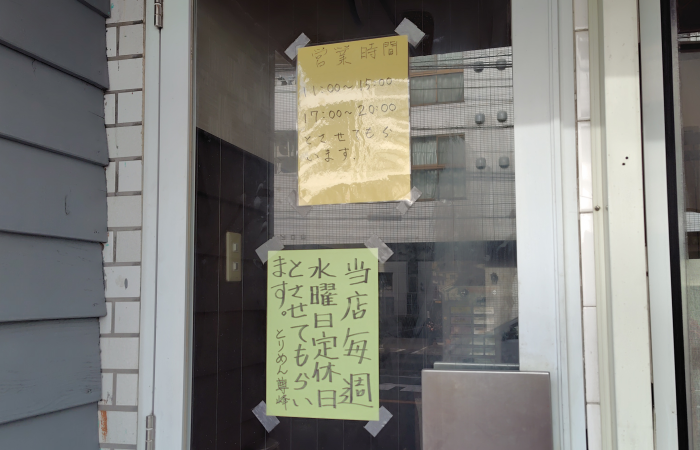 営業時間
11:00～15:00
17:00～20:00
とさせてもら
います。
当店毎週
水曜日定休日
とさせてもらい
ます。 とりめん